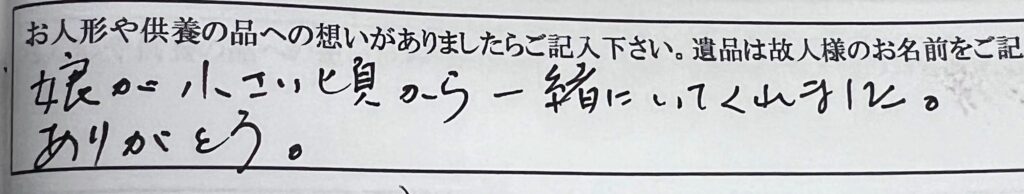 お人形や供養の品への想いがありましたらご記入下さい。遺品は故人様のお名前をご記
娘が小さい頃から一緒にいてくれました。
ありがとう。